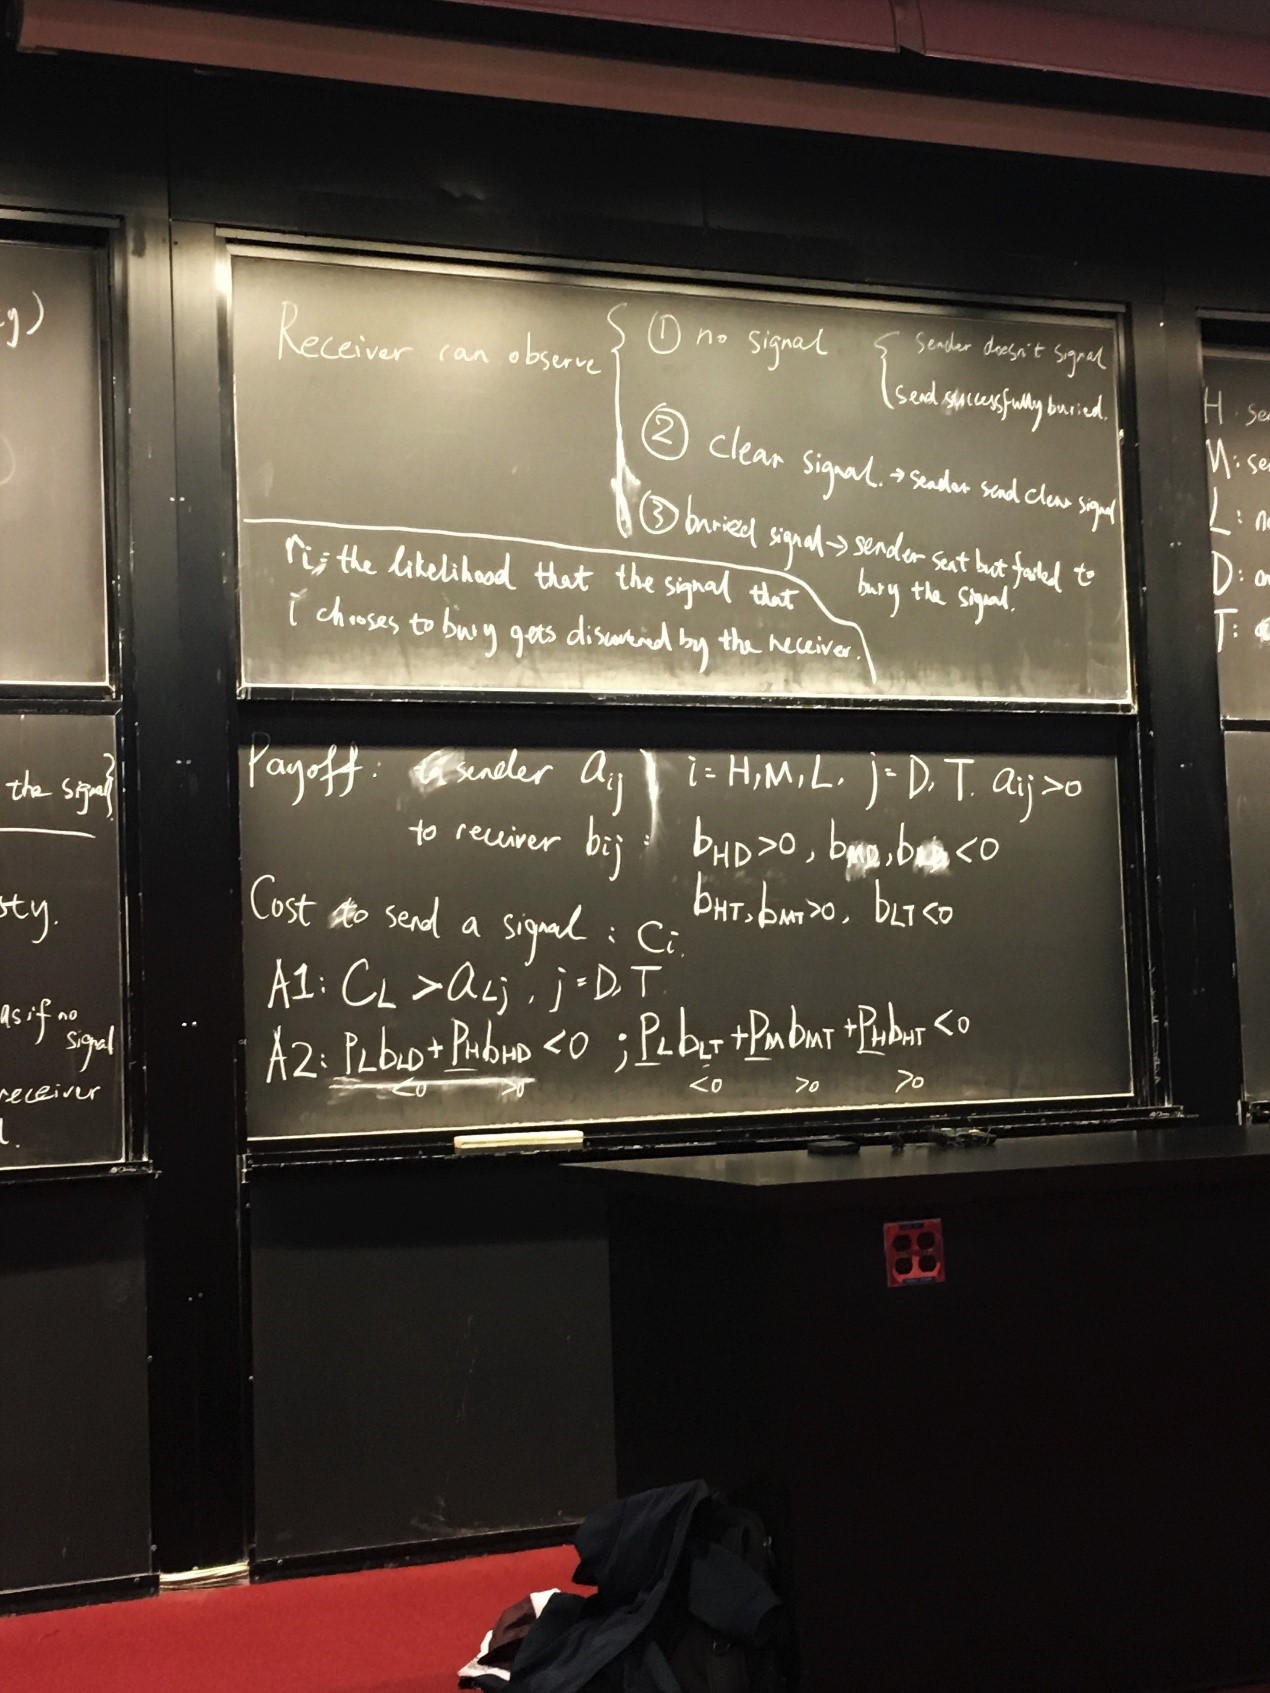 y)
the signal}
sty.
as if no
signal
receiver
Receiver can observe
① no signal
sender doesn't signal
send successfully buried.
② clear signal. → sender send clear signal
③ buried signal → sender sent but failed to
bury the signal.
ri: the likelihood that the signal that
i chooses to bury gets discovered by the receiver.
Payoff: sender aij i = H, M, L. j = D, T. aij > 0
to receiver bij : bHD > 0, bMD, b < 0
bHT, bMT > 0, bLT < 0
Cost to send a signal : Ci.
A1: CL > aLj, j = D, T
A2: PLbLD + PHbHD < 0 ; PLbLT + PMbMT + PHbHT < 0
<0 >0 <0 >0 >0
H
M:
L:
D:
T: